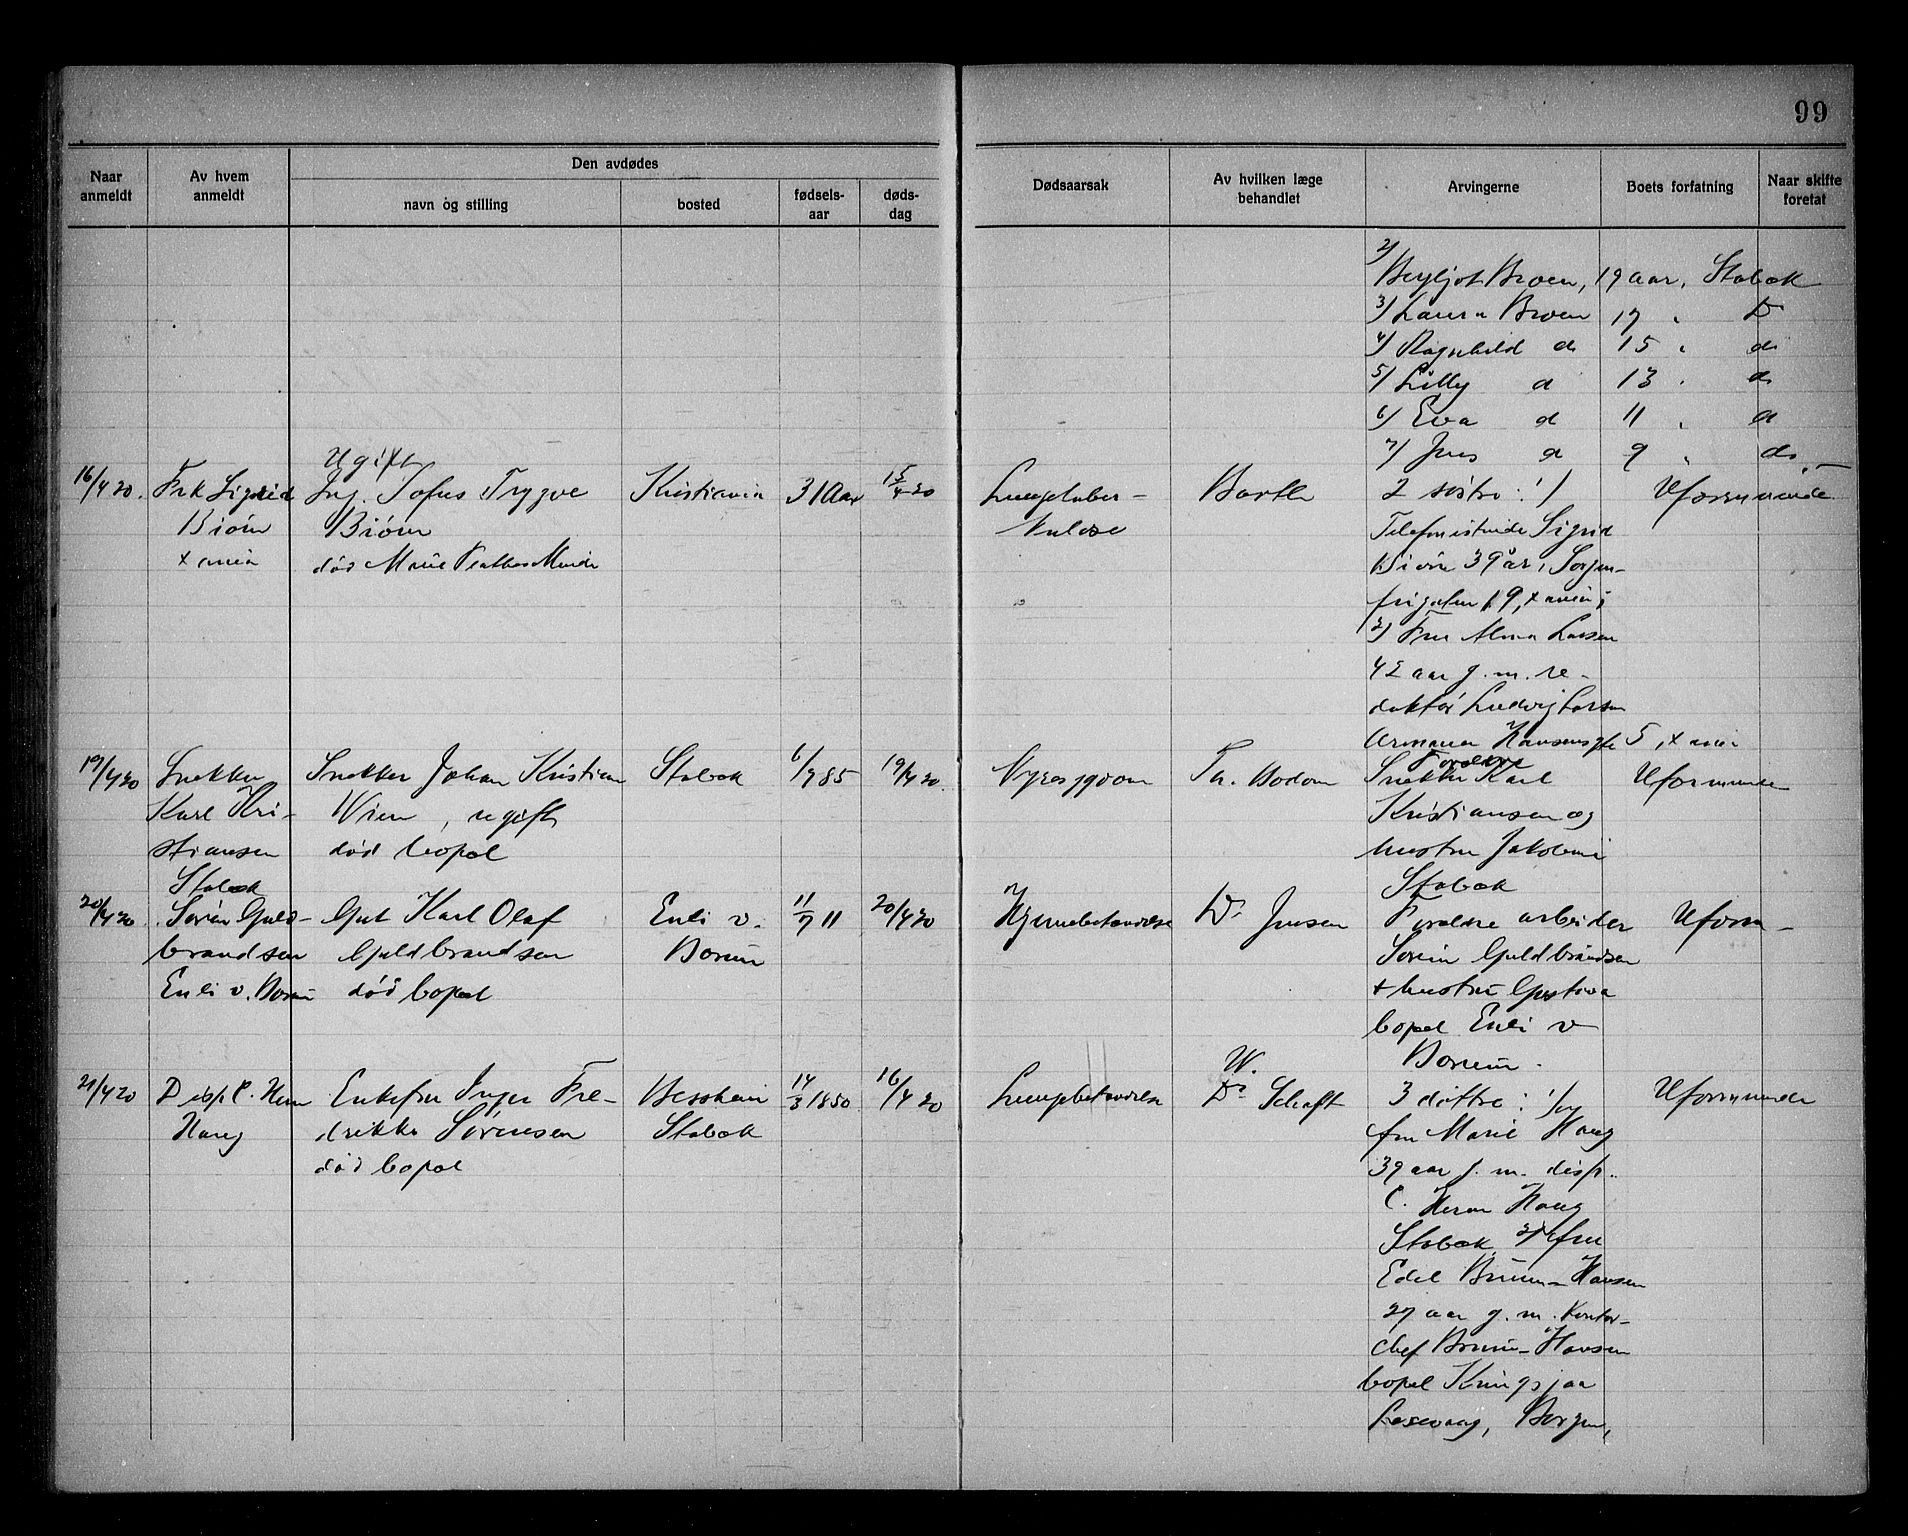 99
Naar anmeldt
Av hvem anmeldt
Den avdødes
navn og stilling
bosted
fødsels-aar
døds-dag
Dødsaarsak
Av hvilken læge behandlet
Arvingerne
Boets forfatning
Naar skifte foretat
2/
Bergljot Broen, 19 aar, Stabæk
3/ Laura Broen 17 " D
4/ Ragnhild do 15 " do
5/ Lilly d 13 " do
6/ Eva d 11 " d
7/ Jens d 9 " do
16/4 20.
Frk Sigrid
Biørn
x ania
Ugift
Ing. Tofus Trygve
Biørn
død Marie Plathes Minde
Kristiania
31 Aar
15/4 20
Lungetuber-
kulose
Barth
2 søstre: 1)
Telefonistinde Sigrid
Biørn 39 år, Sorgen-
frigaten 19, x ania;
2) Fru Alma Larsen
42 aar g. m. re-
daktør Ludvig Larsen
Armauer Hansensgt 5, x ania
Uformuende
19/4 20
Snekker
Karl Kri-
stiansen
Stabæk
Snekker Johan Kristian
Wien, ugift
død bopæl
Stabæk
6/7 85
19/4 20.
Nyresygdom
Th. Bodom
Forældre
Snekker Karl
Kristiansen og
hustru Jakobine
Stabæk
Uformuende
20/4 20.
Søren Guld-
brandsen
Enli v. Bærum
Gut Karl Olaf
Guldbrandsen
død bopæl
Enli v.
Bærum
11/7 11
20/4 20
Hjernebetændelse
Dr Jensen
Forældre arbeider
Søren Guldbrandsen
+ hustru Gustava
bopæl Enli v
Bærum.
Uform-
21/4 20
Disp C. Herm
Haug
Enkefru Inger Fre-
drikke Sørensen
død bopæl
Besshein
Stabæk
14/3 1850
16/4 20
Lungebetændelse
W.
Dr Schaft
3 døttre: 1/
fru Marie Haug
39 aar g. m. disp.
C. Herm Haug
Stabæk 2/ fru
Edel Bruun-Hansen
27 aar g. m. Kontor-
chef Bruun-Hansen
bopæl
Laksevaag, Bergen,
Uformuende